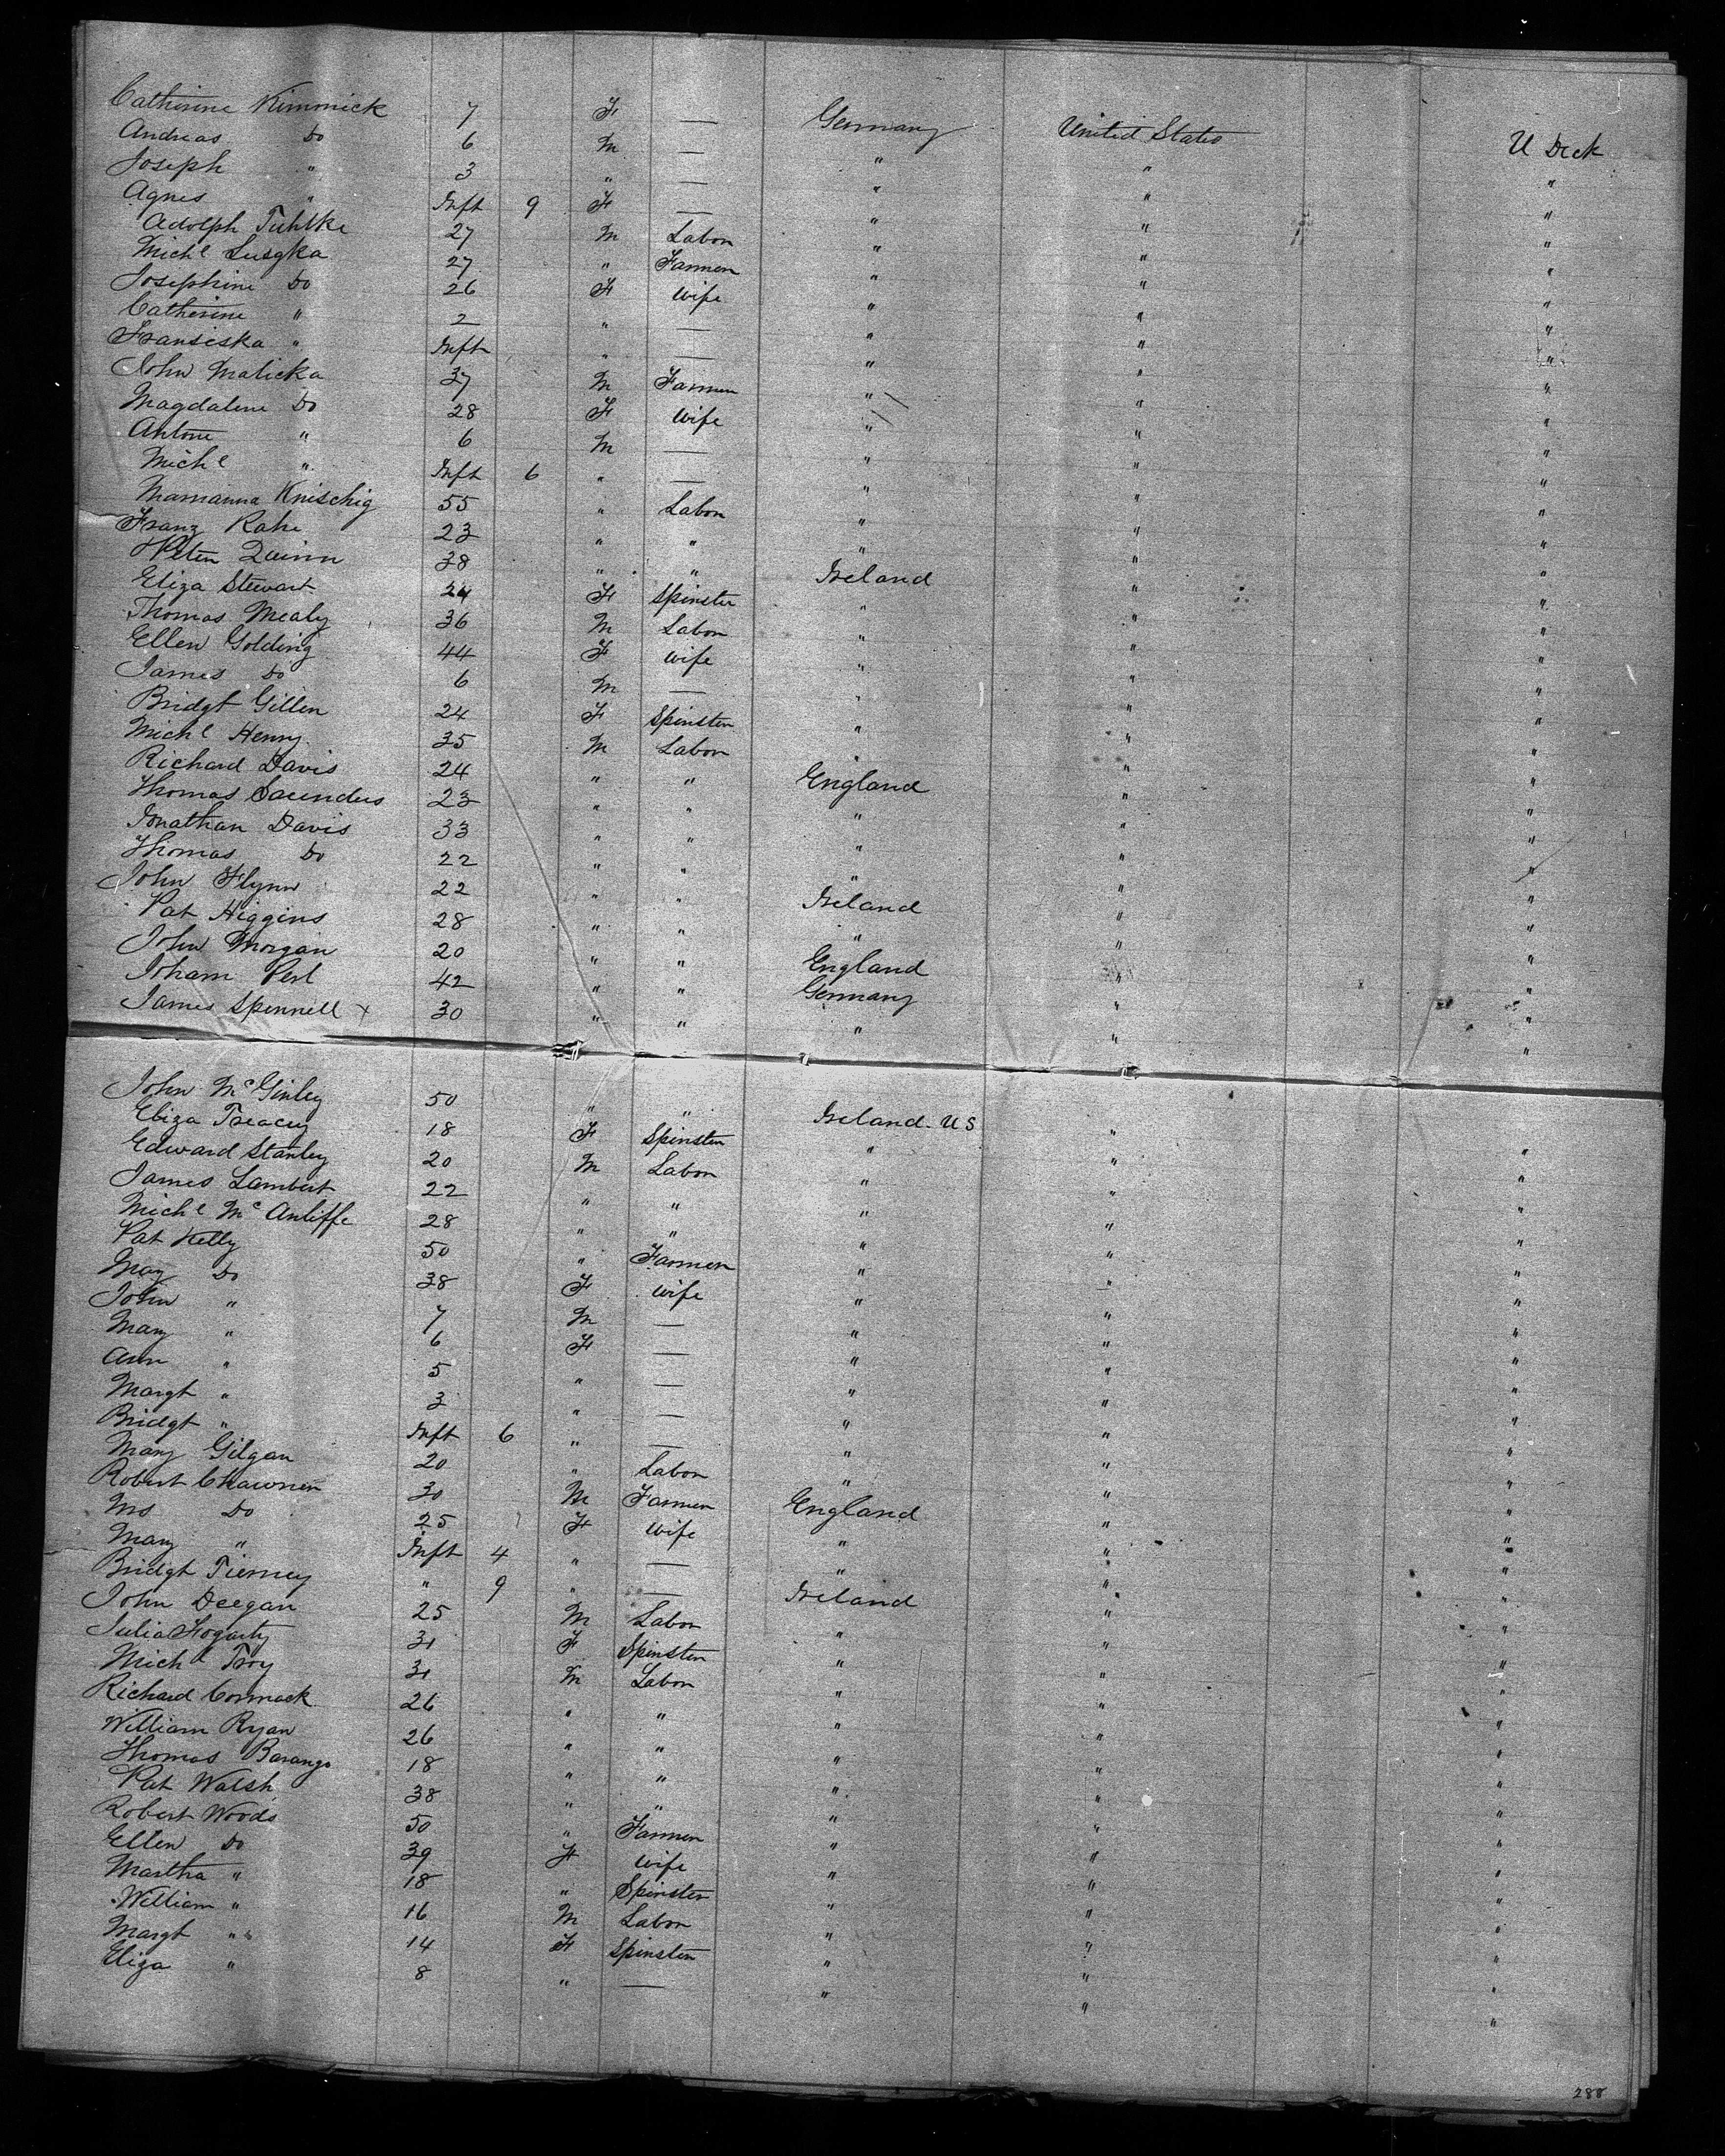 Catherine Kimmick 7 F — Germany United States U Deck
Andreas Do 6 M — " " "
Joseph " 3 " — " " "
Agnes " Inft 9 F — " " "
Adolph Tuhlke 27 M Labor " " "
Michl Lusgka 27 " Farmer " " "
Josephine Do 26 F Wife " " "
Catherine " 2 " — " " "
Fransiska " Inft " — " " "
John Malicka 37 M Farmer " " "
Magdalene Do 28 F Wife " " "
Antone " 6 M — " " "
Michl " Inft 6 " — " " "
Marianna Knischig 55 " Labor " " "
Franz Rahe 23 " " " " "
Peter Quinn 38 " " Ireland " "
Eliza Stewart 24 F Spinster " " "
Thomas Mealy 36 M Labor " " "
Ellen Golding 44 F Wife " " "
James Do 6 M — " " "
Bridgt Gillen 24 F Spinster " " "
Michl Henry 35 M Labor " " "
Richard Davis 24 " " England " "
Thomas Saunders 23 " " " " "
Jonathan Davis 33 " " " " "
Thomas Do 22 " " " " "
John Flynn 22 " " Ireland " "
Pat Higgins 28 " " " " "
John Morgan 20 " " England " "
Joham Perl 42 " " Germany " "
James Spennell x 30 " " " " "
John McGinley 50 " " Ireland - U S " "
Eliza Treacy 18 F Spinster " " "
Edward Stanley 20 M Labor " " "
James Lambert 22 " " " " "
Michl McAuliffe 28 " " " " "
Pat Kelly 50 " Farmer " " "
Mary Do 38 F Wife " " "
John " 7 M — " " "
Mary " 6 F — " " "
Ann " 5 " — " " "
Margt " 3 " — " " "
Bridgt " Inft 6 " — " " "
Mary Gilgan 20 " Labor " " "
Robert Chawner 30 M Farmer England " "
Mrs Do 25 F Wife " " "
Mary " Inft 4 " — " " "
Bridgt Tierney " 9 " — Ireland " "
John Deegan 25 M Labor " " "
Julia Fogarty 31 F Spinster " " "
Michl Troy 31 M Labor " " "
Richard Cormack 26 " " " " "
William Ryan 26 " " " " "
Thomas Barango 18 " " " " "
Pat Walsh 38 " " " " "
Robert Woods 50 " Farmer " " "
Ellen Do 39 F Wife " " "
Martha " 18 " Spinster " " "
William " 16 M Labor " " "
Margt " 14 F Spinster " " "
Eliza " 8 " — " " "
288